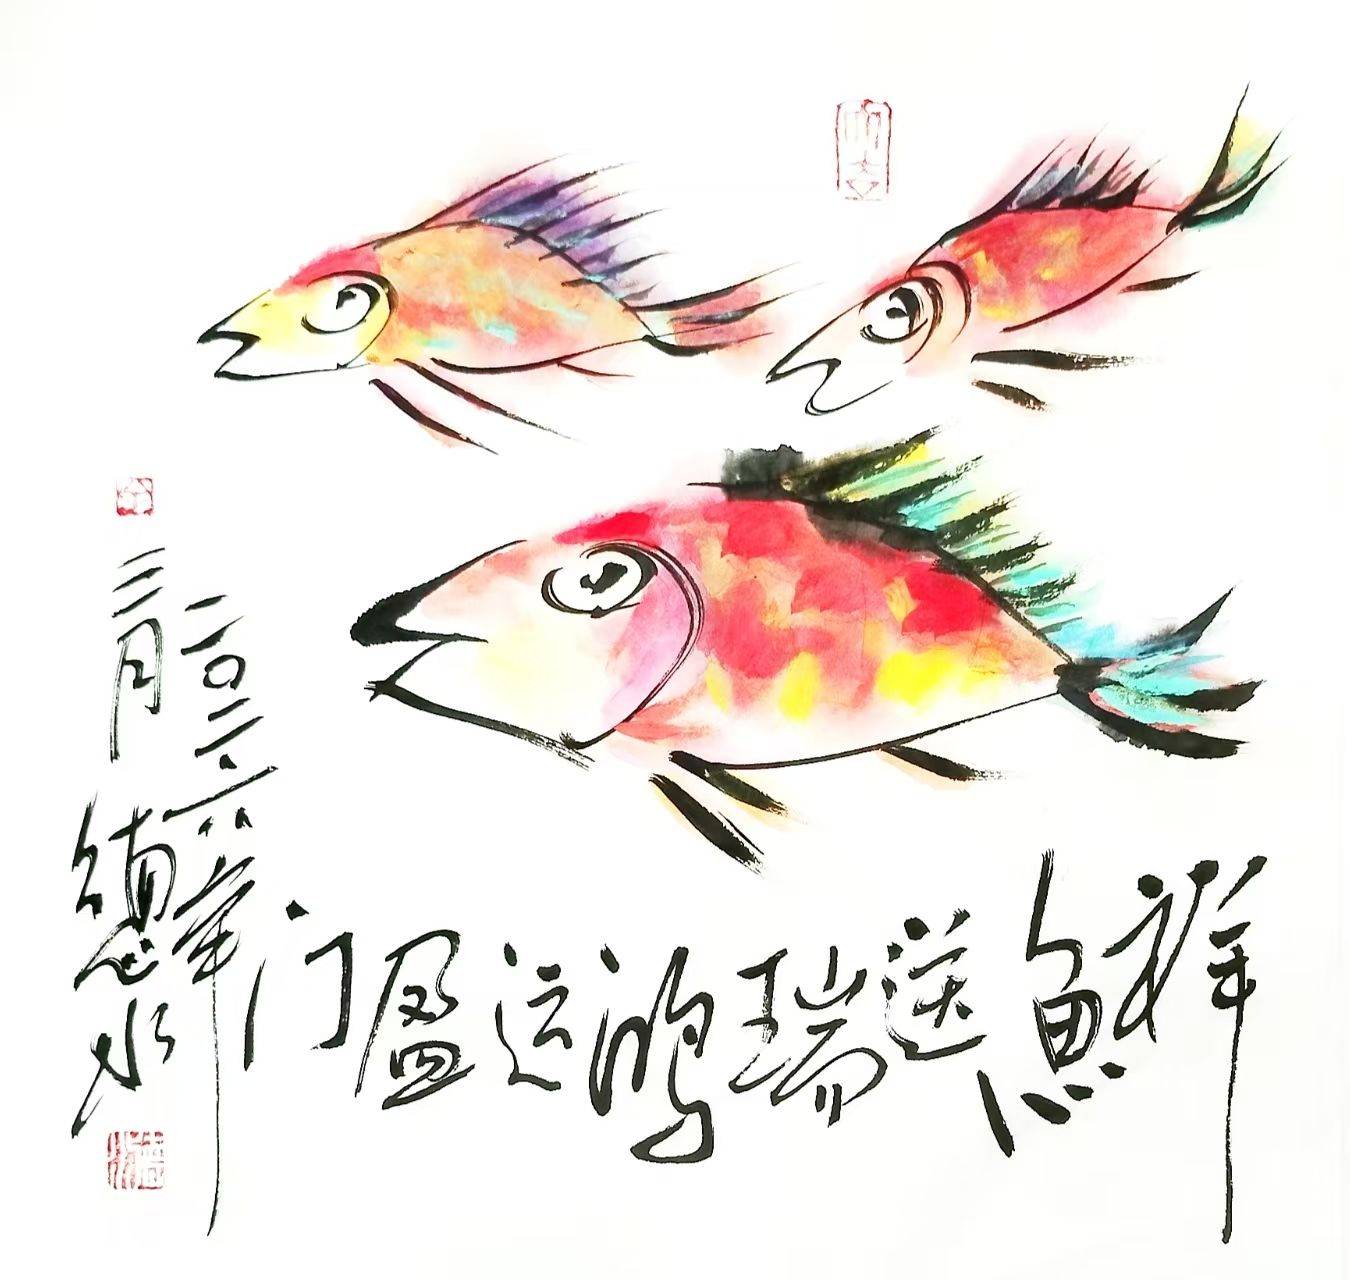 祥魚送瑞鸿运盈门
二〇二六年
三月 德水